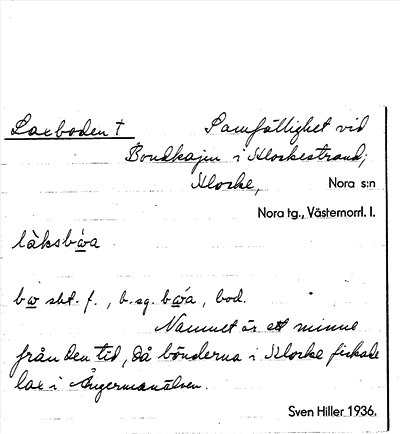 Laxboden †
Samfällighet vid
Bondkajen i Klockestrand,
Klocke, Nora s:n
Nora tg., Västernorrl. l.
làksbώa
bω sbt. f., b. sg. bώa, bod.
Namnet är ett minne
från den tid, då bönderna i Klocke fiskade
lax i Ångermanälven.
Sven Hiller 1936.